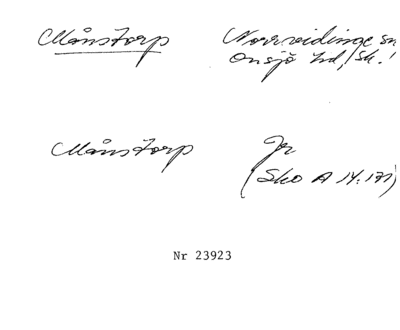 Månstorp Norrvidinge sn
Onsjö hd, Sk.!
Månstorp Jr
(Sko A 14:171)
Nr 23923